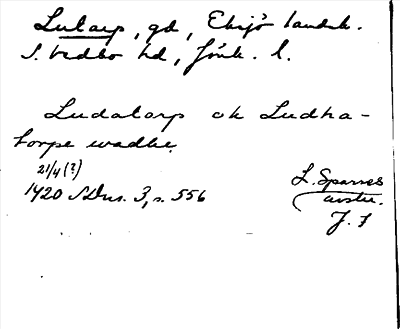 Lutarp, gd, Eksjö landsk.
S. Vedbo hd, Jönk. l.
Ludatorp ok Ludha-
torpe wadhe
21/4 (?)
1420 SDns. 3, s. 556
L. Sparres
avskr.
J. F